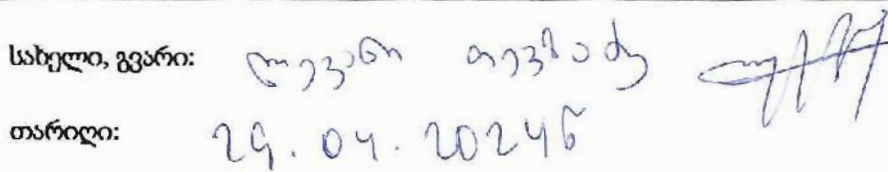 სახელი, გვარი: ლევანი თევზაძე
თარიღი: 29.04.2024წ